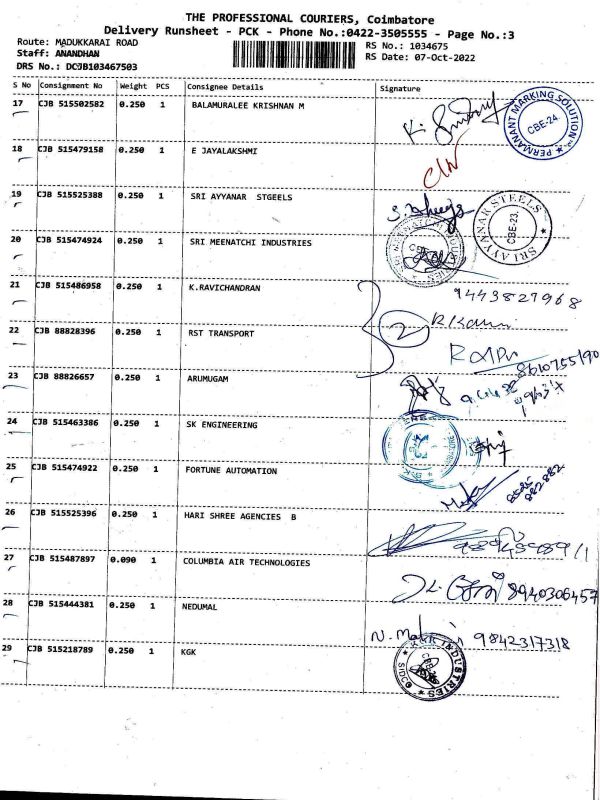 THE PROFESSIONAL COURIERS, Coimbatore
Delivery Runsheet - PCK - Phone No.:0422-3505555 - Page No.:3
Route: MADUKKARAI ROAD
RS No.: 1034675
Staff: ANANDHAN
RS Date: 07-Oct-2022
DRS No.: DCJB103467503
S No Consignment No Weight PCS Consignee Details Signature
17 CJB 515502582 0.250 1 BALAMURALEE KRISHNAN M
PERMANANT MARKING SOLUTION CBE-24
18 CJB 515479158 0.250 1 E JAYALAKSHMI
19 CJB 515525388 0.250 1 SRI AYYANAR STGEELS
SRI AYYANAR STEELS CBE-23
20 CJB 515474924 0.250 1 SRI MEENATCHI INDUSTRIES
21 CJB 515486958 0.250 1 K.RAVICHANDRAN 9443827968
22 CJB 88828396 0.250 1 RST TRANSPORT
23 CJB 88826657 0.250 1 ARUMUGAM
24 CJB 515463386 0.250 1 SK ENGINEERING
25 CJB 515474922 0.250 1 FORTUNE AUTOMATION
26 CJB 515525396 0.250 1 HARI SHREE AGENCIES B
27 CJB 515487897 0.090 1 COLUMBIA AIR TECHNOLOGIES
8940306457
28 CJB 515444381 0.250 1 NEDUMAL
9842317318
29 CJB 515218789 0.250 1 KGK
INDUSTRIES